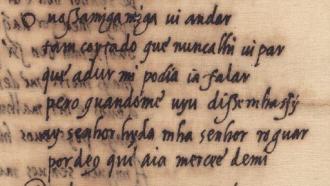 O uossamiga migo ui andar
tam coytado que nunca lhi ui par
que adur mi podia ia falar
pero quandome uyu disse mhassy
ay senhor hyde mha senhor roguar
por deo que aia mercee demi